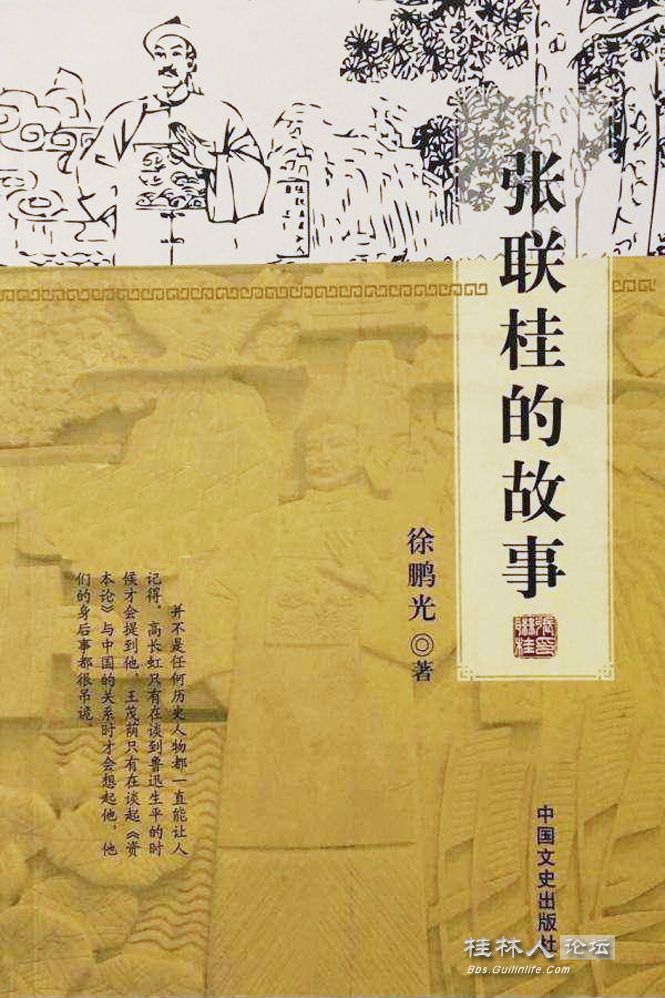 张联桂的故事
徐鹏光◎著
并不是任何历史人物都一直能让人
记得。高长虹只有在谈到鲁迅生平的时
候才会提到他，王茂荫只有在谈起《资
本论》与中国的关系时才会想起他，他
们的身后事都很吊诡。
中国文史出版社
桂林人论坛
Bbs.Guilinlife.Com